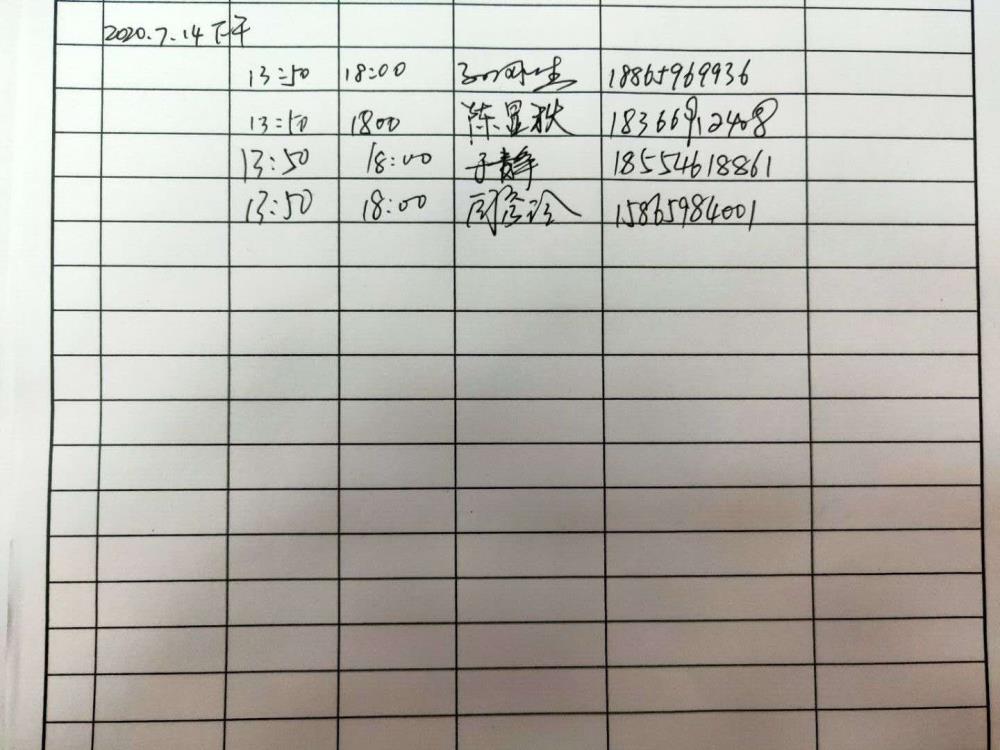 2020.7.14 下午
13:50 18:00 18865969936
13:50 1800 陈显秋 18366912408
13:50 18:00 于静 18554618861
13:50 18:00 15865984001